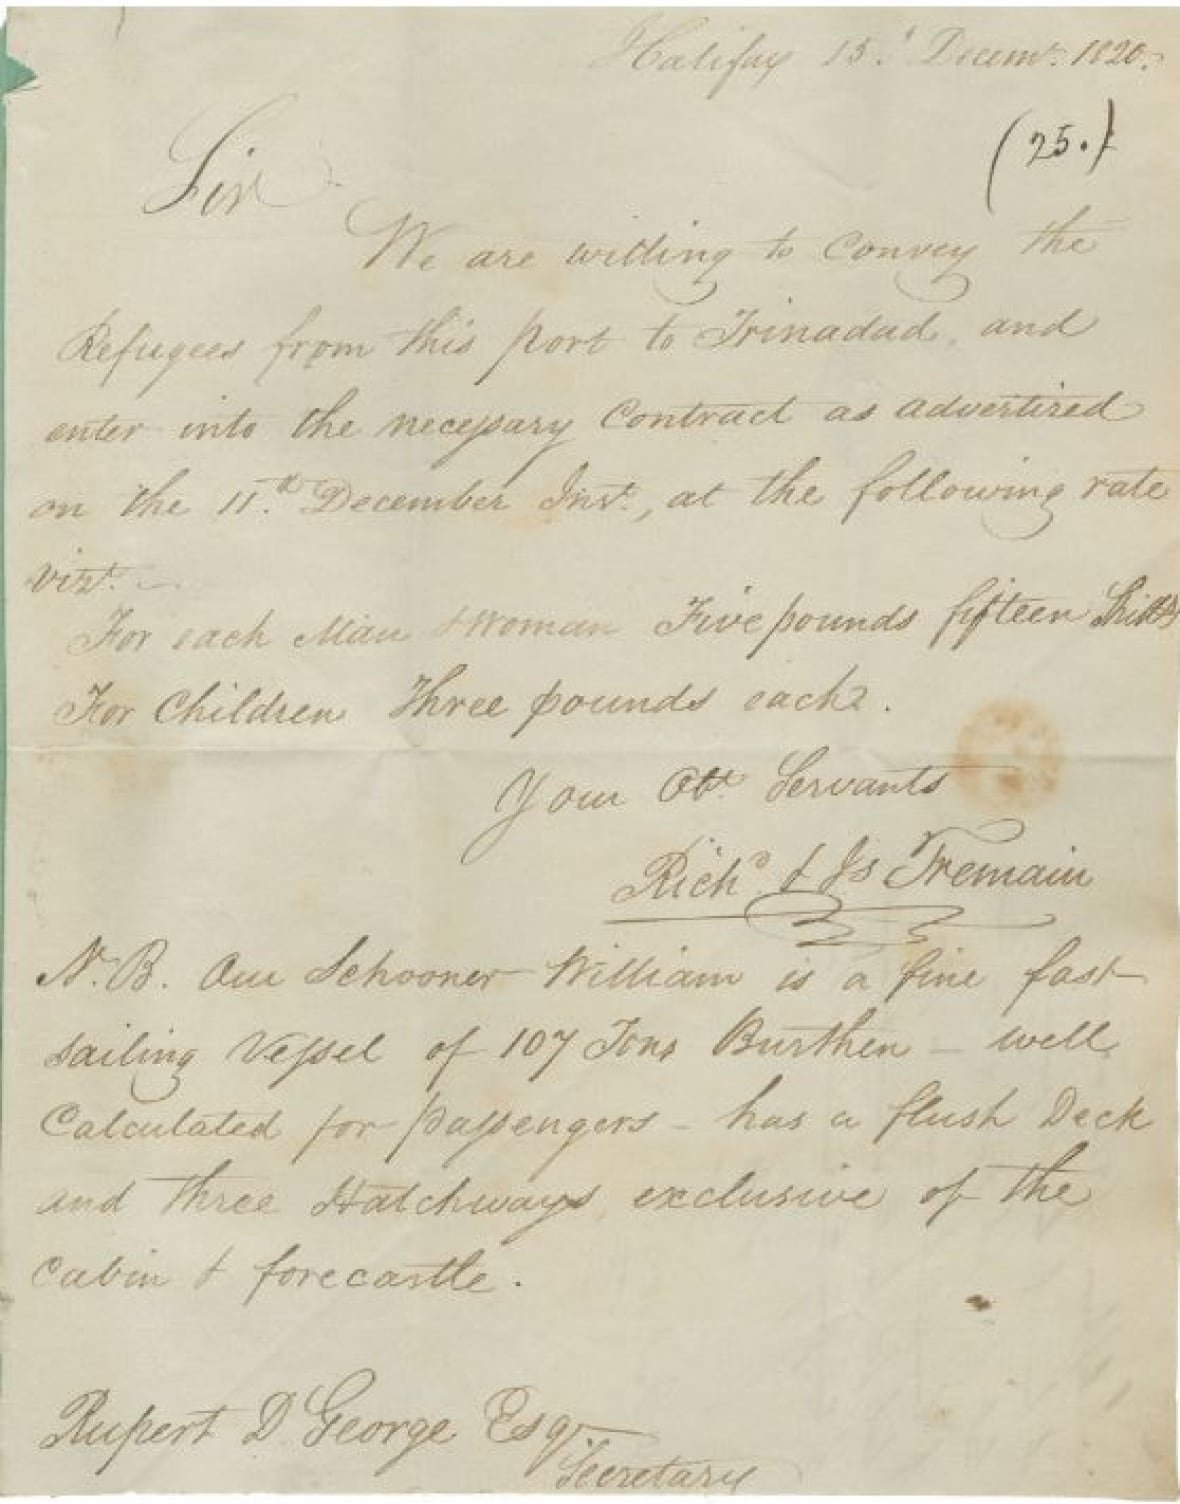 Halifax 15.t Decemr. 1820.
(25.)
Sir
We are willing to Convey the
Refugees from this port to Trinadad, and
enter into the necessary Contract as advertised
on the 11.th December Inst., at the following rate
Vizt.
For each Man & Woman Five pounds fifteen Shills
For Children Three pounds each.
Your Obt. Servants
Richd. & Js Tremain
N.B. Our Schooner William is a fine fast
sailing Vessel of 107 Tons Burthen – well
Calculated for passengers – has a flush Deck
and three Hatchways, exclusive of the
Cabin & forecastle.
Rupert D. George Esqr
Secretary